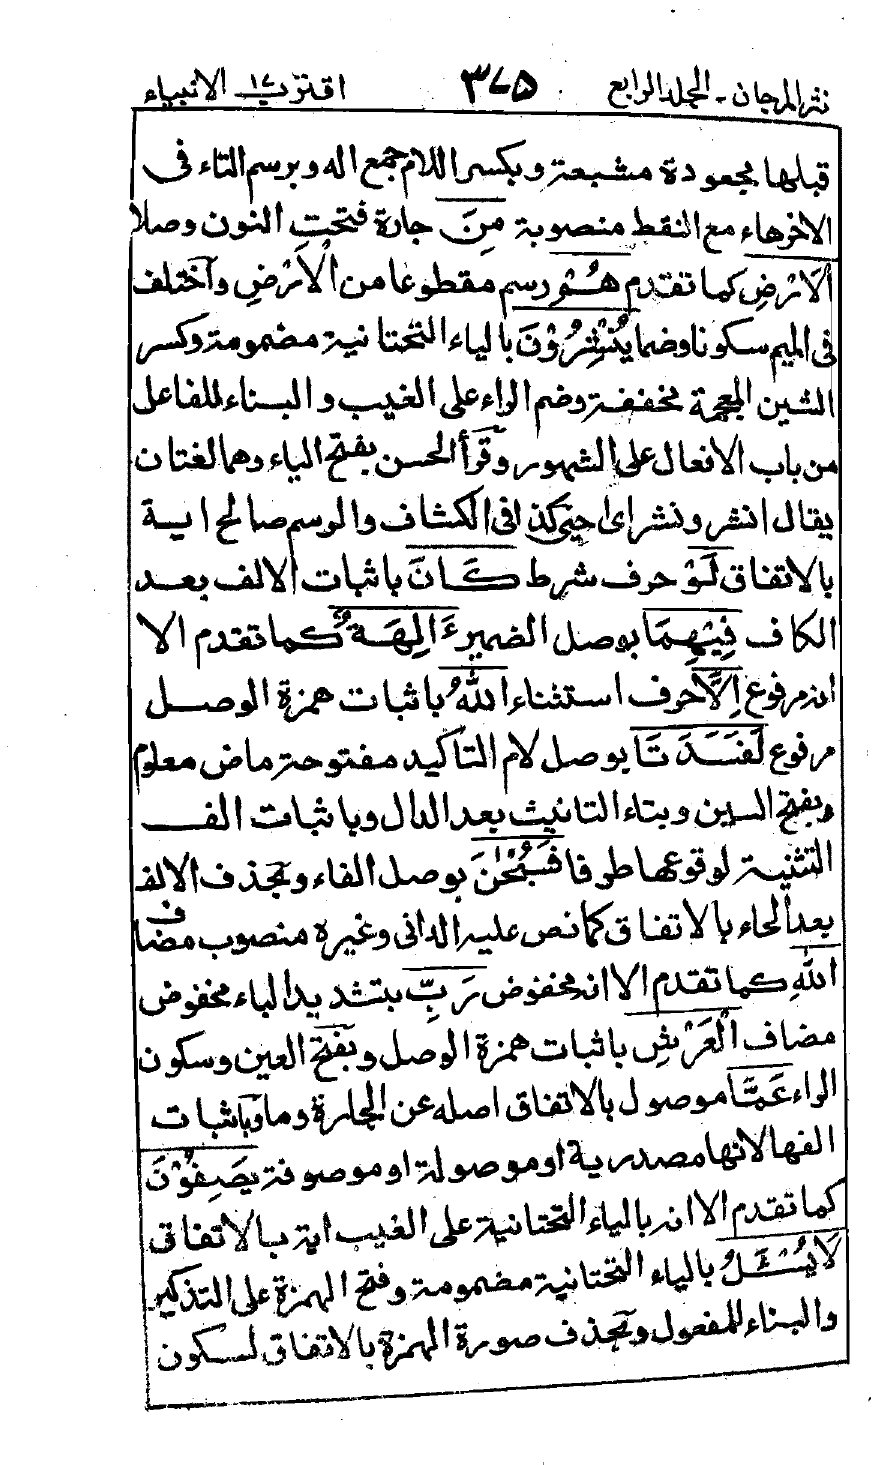 نثر المرجان - المجلد الرابع ٣٧٥ اقترب ١٧ الانبياء
قبلها مجعودة مشبعة وبكسر اللام جمع اله وبرسم التاء فى
الاخرهاء مع النقط منصوبة مِنَ جارة فتحت النون وصلا
اَلْاَرْضِ كما تقدم هُمْ ورسم مقطوعا من اَلْاَرْضِ واختلف
فى الميم سكونا وضما يُنْشِرُوْنَ بالياء التحتانية مضمومة وكسر
الشين المعجمة مخففة وضم الراء على الغيب والبناء للفاعل
من باب الافعال على الشهور وقرأ الحسن بفتح الياء وهما لغتان
يقال انشر ونشر اى احيى كذا فى الكشاف والرسم صالح اية
بالاتفاق لَوْ حرف شرط كَانَ باثبات الالف بعد
الكاف فِيْهِمَا بوصل الضمير ءَالِهَةٌ كما تقدم الا
انه مرفوع اِلَّا حرف استثناء اللّٰهُ باثبات همزة الوصل
مرفوع لَفَسَدَتَا بوصل لام التاكيد مفتوحة ماض معلوم
وبفتح السين وبتاء التانيث بعد الدال وباثبات الف
التثنية لوقوعها طرفا فَسُبْحٰنَ بوصل الفاء وبحذف الالف
بعد الحاء بالاتفاق كما نص عليه الدانى وغيره منصوب مضاف
اللّٰهِ كما تقدم الا انه مخفوض رَبِّ بتشديد الباء مخفوض
مضاف الْعَرْشِ باثبات همزة الوصل وبفتح العين وسكون
الراء عَمَّا موصول بالاتفاق اصله عن الجارة وما وباثبات
الفها لانها مصدرية او موصولة او موصوفة يَصِفُوْنَ
كما تقدم الا انه بالياء التحتانية على الغيب اية بالاتفاق
لَا يُسْـَٔلُ بالياء التحتانية مضمومة وفتح الهمزة على التذكير
والبناء للمفعول وبحذف صورة الهمزة بالاتفاق لسكون